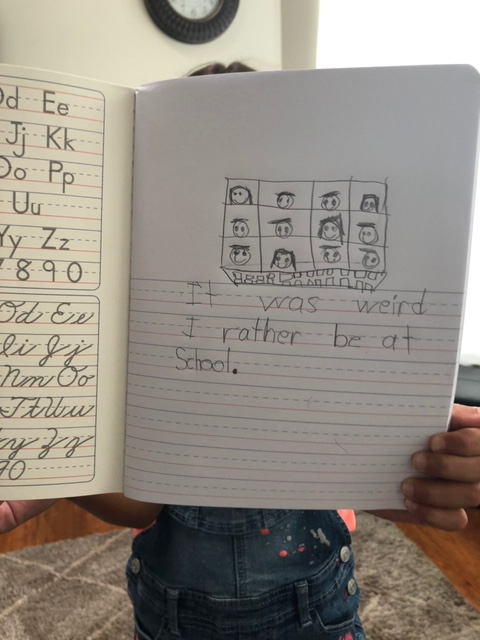 Dd Ee
Jj Kk
Oo Pp
Uu
Yy Zz
7 8 9 0
Dd Ee
Ii Jj
Nn Oo
Tt Uu
Yy Zz
90
It was weird
I rather be at
School.